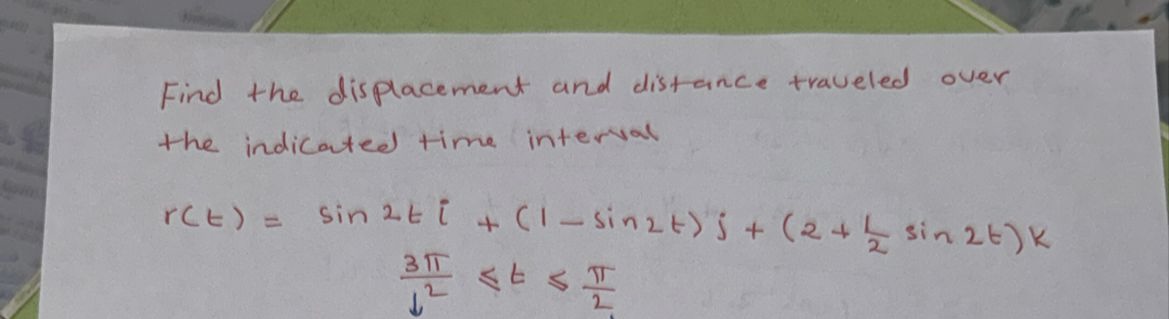 Find the displacement and distance traveled over
the indicated time interval
r(t) = sin 2t i + (1 - sin 2t) j + (2 + 1/2 sin 2t) k
3π/2 ≤ t ≤ π/2